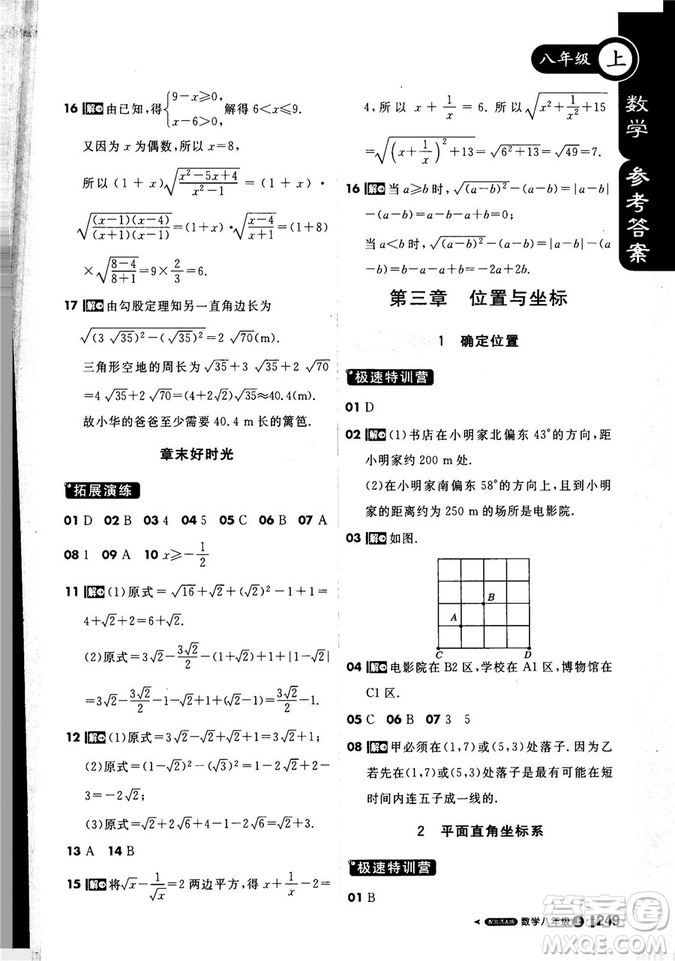 八年级 上
数学 参考答案
16 解 由已知,得{9-x≥0, x-6>0, 解得 6<x≤9.
又因为 x 为偶数,所以 x=8,
所以 (1+x)√((x²-5x+4)/(x²-1)) = (1+x)·
√((x-1)(x-4)/((x+1)(x-1))) = (1+8)
×√((8-4)/(8+1)) = 9×2/3 = 6.
17 解 由勾股定理知另一直角边长为
√((3√35)²-(√35)²) = 2√70(m).
三角形空地的周长为 √35+3√35+2√70=
4√35+2√70≈40.4(m).
故小华的爸爸至少需要 40.4 m 长的篱笆.
章末好时光
拓展演练
01 D 02 B 03 4 04 5 05 C 06 B 07 A
08 1 09 A 10 x≥-1/2
11 解 (1)原式=√16+√2+(√2)²-1+1=
4+√2+2=6+√2.
(2)原式=3√2-√2/2+2√2+1+|1-√2|
=3√2-√2/2+2√2+1+√2-1=11√2/2.
12 解 (1)原式=3√2-√2-4√2=-2√2.
(2)原式=(1-√2)²-(√2)²=1-2√2+2
-2=1-2√2.
(3)原式=2√3/3.
13 A 14 B
15 解 将√x-1/√x=2 两边平方,得 x+1/x-2=
4,所以 x+1/x=6. √(x²+1/x²+15)
=√((x+1/x)²+13)=√(6²+13)=√49=7.
16 解 当 a≥b 时,√((a-b)²)-(a-b)=|a-b|
-(a-b)=(a-b)-(a-b)=0;
当 a<b 时,√((a-b)²)-(a-b)=|a-b|-
(a-b)=-(a-b)-(a-b)=2b-2a.
第三章 位置与坐标
1 确定位置
极速特训营
01 D
02 解 (1)书店在小明家北偏东 43°的方向,距
小明家约 200 m 处.
(2)在小明家南偏东 58°的方向上,且到小明
家的距离约为 250 m 的场所是电影院.
03 解 如图.
B
A
C D
04 解 电影院在 B2 区,学校在 A1 区,博物馆在
C1 区.
05 C 06 B 07 3 5
08 解 甲必须在(1,7)或(5,3)处落子.因为乙
若先在(1,7)或(5,3)处落子,则甲不能在短
时间内连五子成一线的.
2 平面直角坐标系
极速特训营
01 B
数学八年级 上 249
作业精灵
MXQE.COM